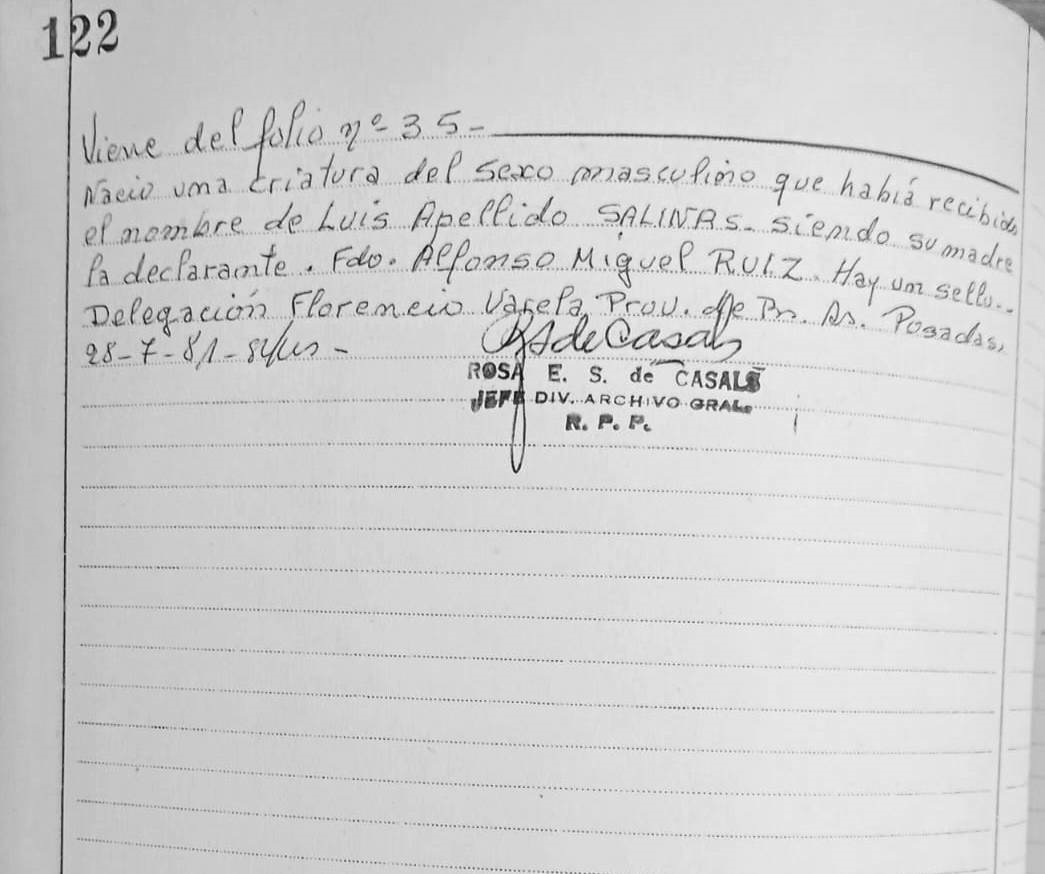 122
Viene del folio nº 35-
Nacio una criatura del sexo masculino que había recibido
el nombre de Luis Apellido SALINAS. siendo su madre
la declarante. Fdo. Alfonso Miguel RUIZ. Hay un sello..
Delegación Florencio Varela, Prov. de Bs. As. Posadas,
28-7-81-
RSdeCasals
ROSA E. S. de CASALS
JEFE DIV. ARCHIVO GRAL.
R. P. P.